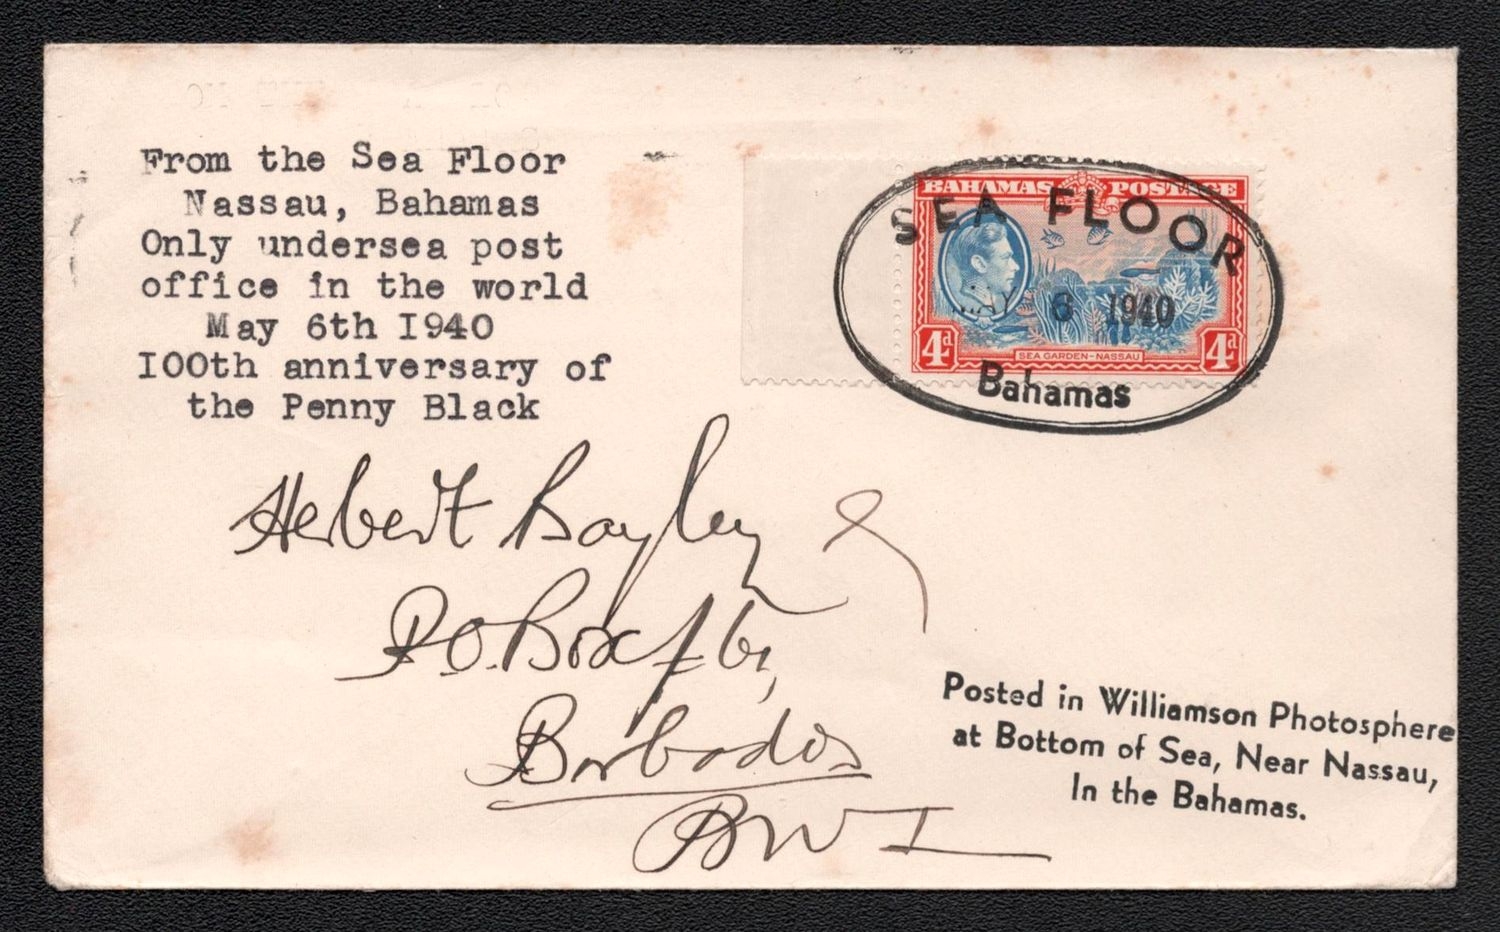 From the Sea Floor
Nassau, Bahamas
Only undersea post
office in the world
May 6th I940
I00th anniversary of
the Penny Black
BAHAMAS POSTAGE
SEA FLOOR
MAY 6 1940
4d
SEA GARDEN-NASSAU
4d
Bahamas
Herbert Bayley
P.O. Box
Barbados
BWI
Posted in Williamson Photosphere
at Bottom of Sea, Near Nassau,
In the Bahamas.